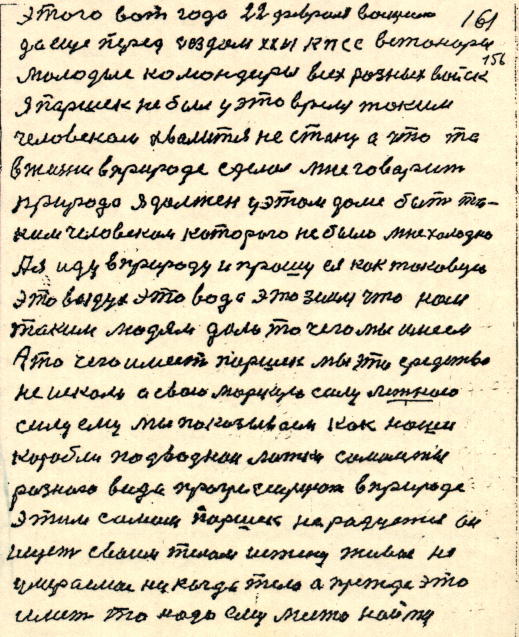 этого вот года 22 февраля 161
да еще перед сездам XXVI КПСС 156
молодые командиры всех разных войск
я паршек не был у это время таким
человеком хвалится не стану а что то
в жизни в природе сделал мне говарит
природа я должен у этом доме быть та-
ким человеком которого не было мне холодно
А я иду в природу и прошу ея как таковую
это воздух это вода это зимля что нам
таким людям дало то чего мы имеем
А то чего имеет паршек мы это средство
не искали а свою морскую силу
силу ему мы показываем как наши
корабли подводнои лотки самалеты
разного вида в природе
этим самым паршек не радуется он
ищет своим телам истену живое не
умираемае никогда тело а прежде это
имет то надо ему место найти